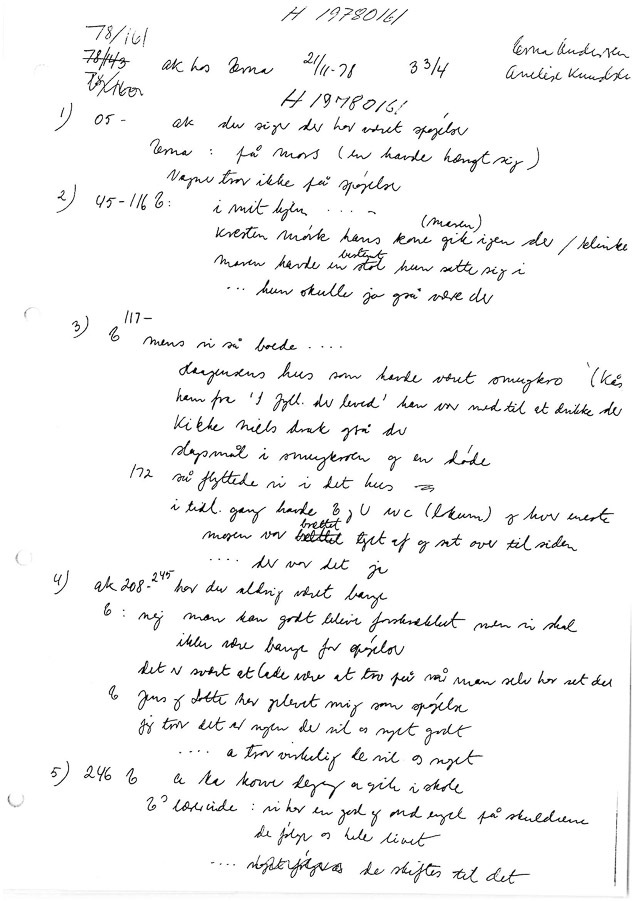 H 1978 0161
78/161
78/143
ak hos Erna 21/11-78 3 3/4
Erna Andersen
Anelise Knudsen
H 1978 0161
1) 05 - ak du siger der har været spøgelse
Erna : på mors (en havde hængt sig)
Vagne tror ikke på spøgelse
2) 45-116 E: i mit hjem .... -
(maren)
Kresten Mørk hans kone gik igen der / klinke
bestemt
maren havde en stol hun satte sig i
... hun skulle jo gså være der
3) E 117- mens vi så boede ....
Haagensens hus som havde været smugkro (Kås
ham fra 'I Jyll. der leved' han var med til at drikke der
Kikke Niels drak gså der
slagsmål i smugkroen og en døde
172 så flyttede vi i det hus
i tidl. gang havde E g U wc (lokum) g hver eneste
brættet
morgen var taget af og sat over til siden
.... der var det jo
4) ak 208-245 har du aldrig været bange
E : nej man kan godt blive forskrækket men vi skal
ikke være bange for spøgelse
det er svært at lade være at tro på når man selv har set det
E Jens g Lotte har oplevet mig som spøgelse
jeg tror det er nogen der vil os noget godt
.... a tror virkelig de vil os noget
5) 246 E a ka kowe a gik i skole
E's lærerinde : vi har en god g ond engel på skuldrene
de følge os hele livet
.... de skiftes til det